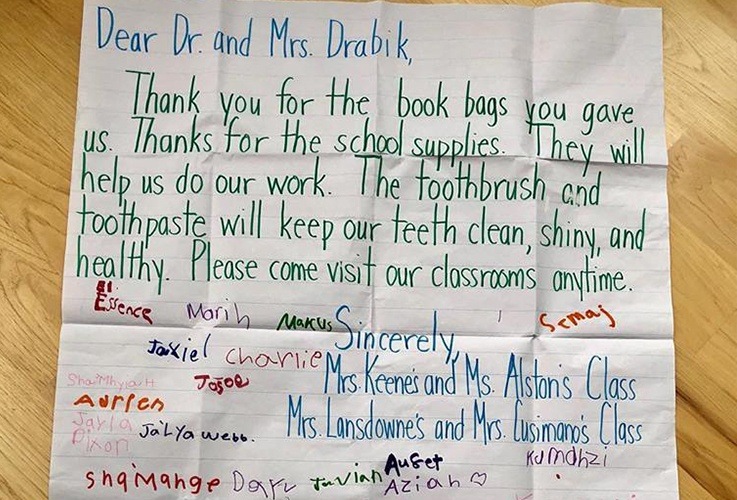 Dear Dr. and Mrs. Drabik,
Thank you for the book bags you gave
us. Thanks for the school supplies. They will
help us do our work. The toothbrush and
toothpaste will keep our teeth clean, shiny, and
healthy. Please come visit our classrooms anytime.
Essence Marih Marcus Sincerely, Semaj
Jaxiel Charlie Mrs. Keene's and Ms. Alston's Class
Aurren Mrs. Lansdowne's and Mrs. Cusimano's Class
Jayla
Dixon Ja'Lya webb.
Kumdhzi
sha'Mange Juvian August
Aziah